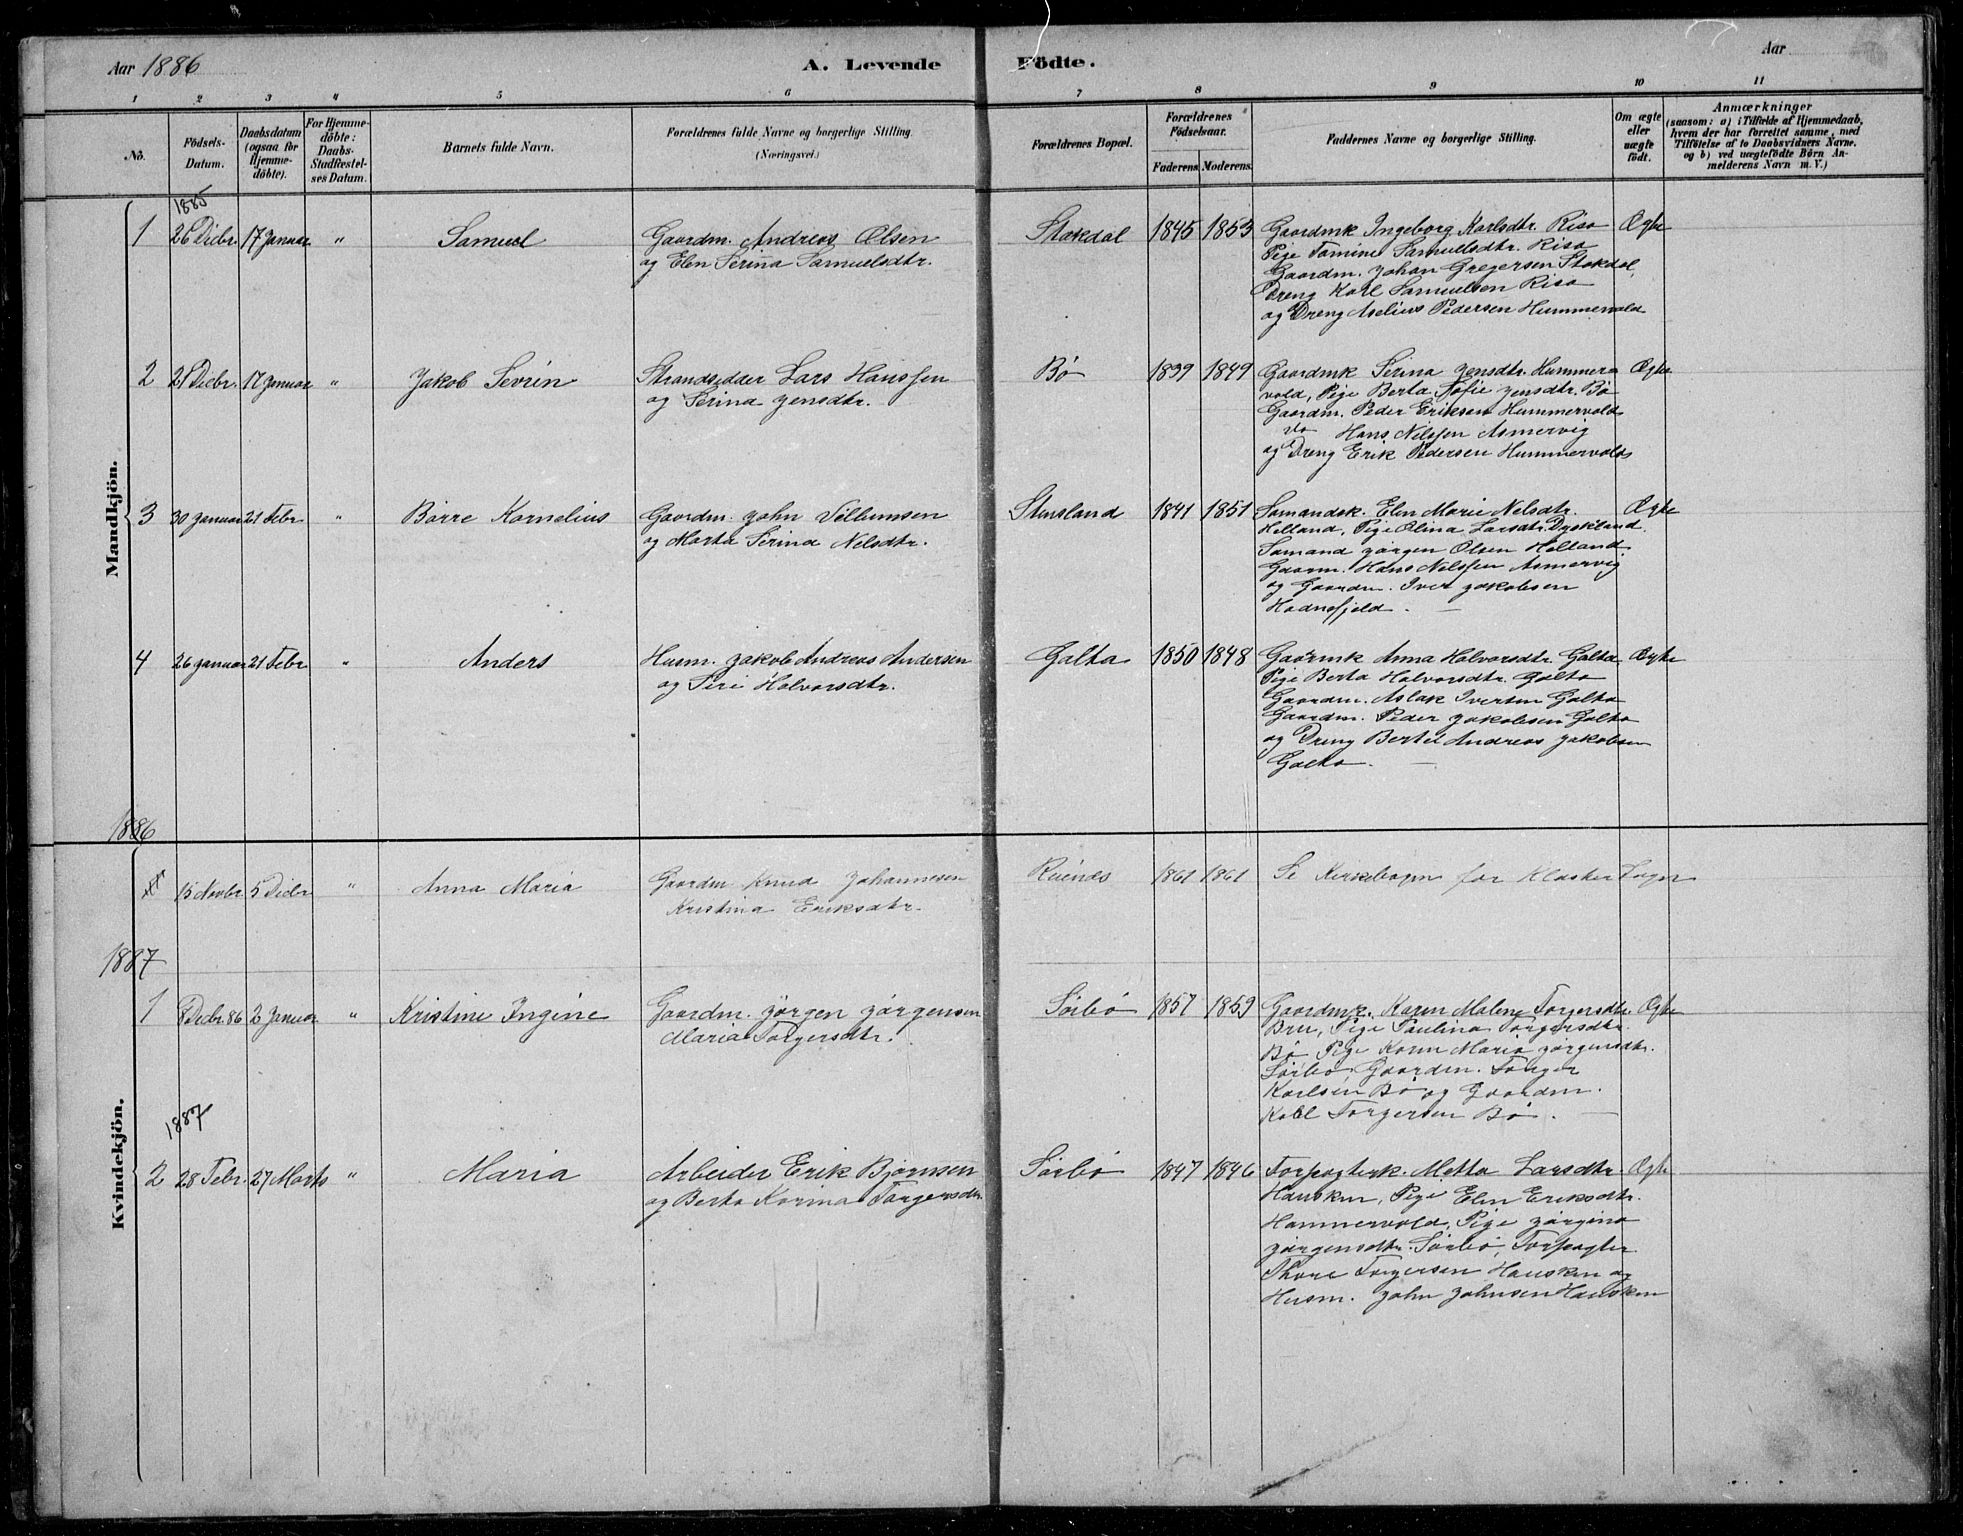 Aar 1886
A. Levende Födte.
Aar
1 2 3 4 5 6 7 8 9 10 11
No.
Födsels-Datum.
Daabsdatum (ogsaa for Hjemme-döbte).
For Hjemme-döbte: Daabs-Stadfæstel-ses Datum.
Barnets fulde Navn.
Forældrenes fulde Navne og borgerlige Stilling.
(Næringsvei.)
Forældrenes Bopæl.
Forældrenes Födselsaar.
Faderens. Moderens.
Faddernes Navne og borgerlige Stilling.
Om ægte eller uægte födt.
Anmærkninger
(saasom: a) i Tilfælde af Hjemmedaab,
hvem der har forrettet samme, med
Tilföielse af to Daabsvidners Navne.
og b) ved uægtefödte Börn An-
melderens Navn m. V.)
Mandkjön.
1885
1 26 Decbr. 17 Januar " Samuel
Gaardm. Andreas Olsen
og Elen Serina Samuelsdtr.
Stokdal 1845 1853
Gaardmk Ingeborg Karlsdtr. Risa
Pige Tomine Samuelsdtr. Risa
Gaardm. Johan Gregersen Stokdal,
Dreng Karl Samuelsen Risa
og Dreng Aselius Pedersen Hummervold
Ægte
2 21 Decbr. 17 Januar " Jakob Sevrin
Strandsidder Lars Hanssen
og Serina Jensdtr.
Bø 1839 1849
Gaardmk Serina Jensdtr. Hummer
vold, Pige Berta Tofie Jensdtr. Bø
Gaardm. Peder Eriksen Hummervold
do Hans Nilssen Asmervig
og Dreng Erik Pedersen Hummervold
Ægte
3 30 Januar 21 Febr. " Børre Kornelius
Gaardm. John Villumsen
og Marta Serina Nelsdtr.
Stensland 1841 1851
Sømandsk. Elen Marie Nelsdtr.
Helland, Pige Olina Larsdtr. Dyskland
Sømand Jørgen Olsen Helland
Gaarm. Hans Nilssen Asmervig
og Gaardm. Iver Jakobsen
Hodnefjeld. —
Ægte
4 26 Januar 21 Febr. " Anders
Husm. Jakob Andreas Andersen
og Siri Halvorsdtr.
Galta 1850 1848
Gaarmk Anna Halvorsdtr. Galta,
Pige Berta Halvorsdtr. Galta
Gaardm. Aslak Iversen Galta
Gaardm. Peder Jakobsen Galta
og Dreng Bertel Andreas Jakobsen
Galta. —
Ægte
Kvindekjön.
1886
15 Novbr. 5 Decbr. " Anna Maria
Gaardm Knud Johannesen
Kristina Eriksdtr.
Reienes 1861 1861
Se Kirkebogen for Kloster Sogn
1887
1 8 Decbr. 86 2 Januar " Kristine Ingine
Gaardm. Jørgen Jørgensen
Maria Torgersdtr.
Sørbø 1857 1859
Gaardmk. Karen Malene Torgersdtr.
Bru, Pige Paulina Torgersdtr.
Bø Pige Karen Maria Jørgensdtr.
Sørbø, Gaardm. Torger
Karlsen Bø og Gaardm.
Karl Torgersen Bø. —
Ægte
1887
2 28 Febr. 27 Marts " Maria
Arbeider Erik Bjørnsen
og Berta Karina Torgersdtr.
Sørbø 1847 1846
Forpagterk. Metta Larsdtr.
Hausken, Pige Elen Eriksdtr.
Hammervold, Pige Jørgina
Jørgensdtr. Sørbø, Forpagter
Thore Torgersen Hausken og
Husm. John Johnsen Hausken
Ægte